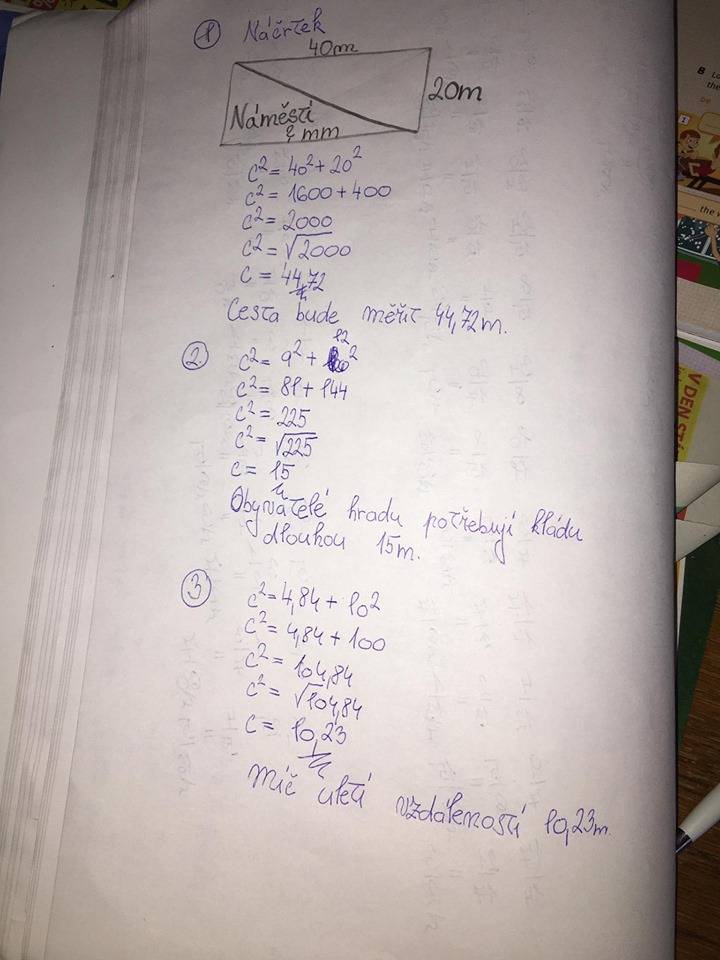 1 Náčrtek
40m
20m
Náměstí
? mm
c² = 40² + 20²
c² = 1600 + 400
c² = 2000
c² = √2000
c = 44,72
Cesta bude měřit 44,72m.
2. c² = 9² + 12²
c² = 81 + 144
c² = 225
c² = √225
c = 15
Obyvatelé hradu potřebují kládu
dlouhou 15m.
3 c² = 4,84 + 10²
c² = 4,84 + 100
c² = 104,84
c² = √104,84
c = 10,23
Míč uletí vzdálenosti 10,23m.
B
the
be
1
the
V DEN